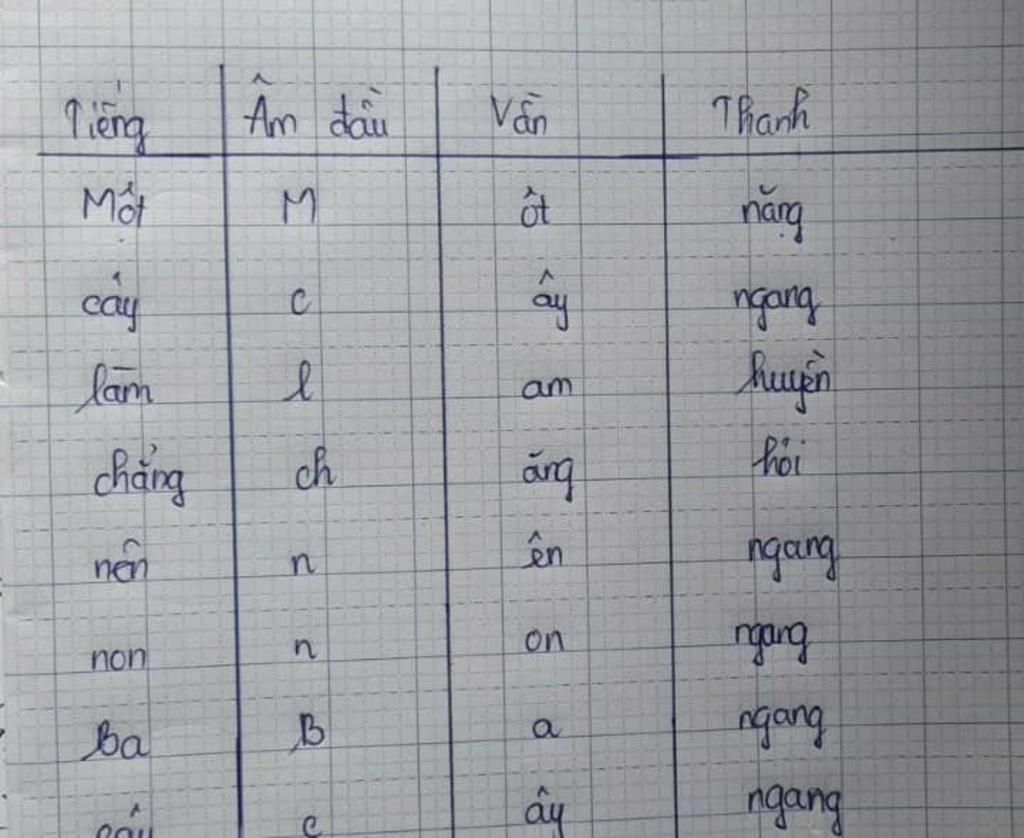 Tiếng Âm đầu Vần Thanh
Một M ôt nặng
cây c ây ngang
làm l am huyền
chẳng ch ăng hỏi
nên n ên ngang
non n on ngang
Ba B a ngang
cây c ây ngang